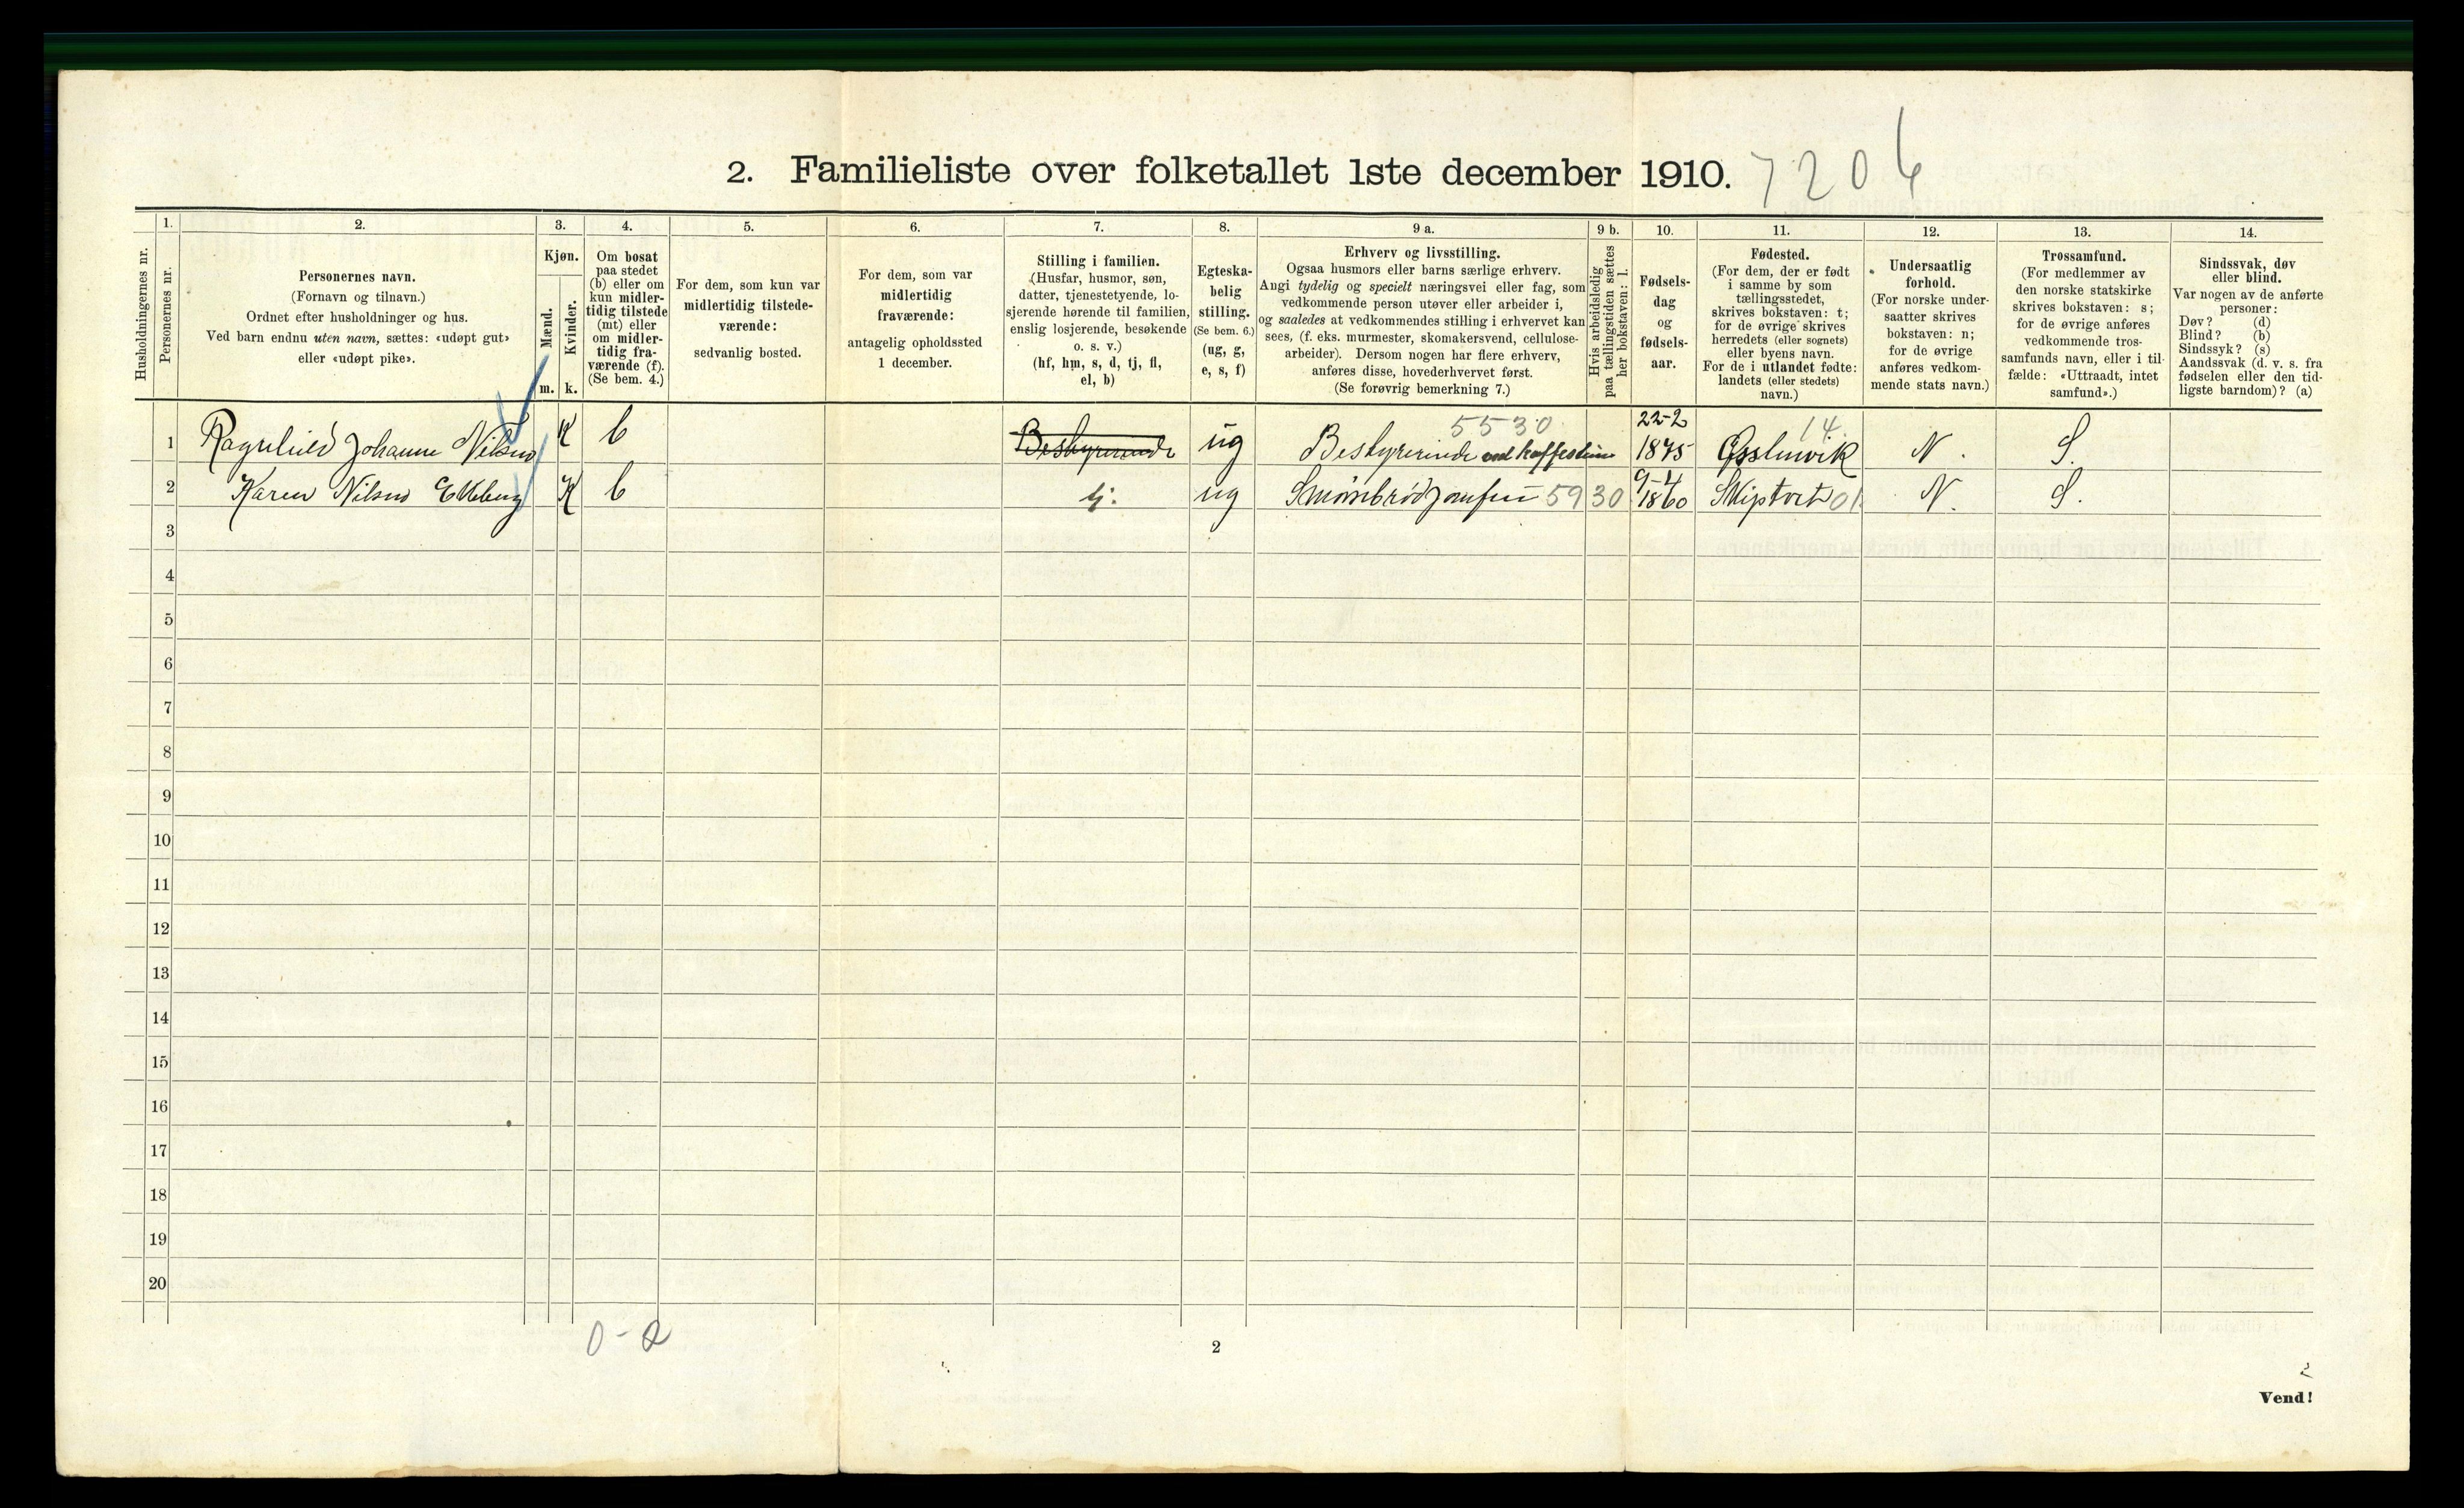 2. Familieliste over folketallet 1ste december 1910. 7206
Husholdningernes nr.
1. Personernes nr.
2.
Personernes navn.
(Fornavn og tilnavn.)
Ordnet efter husholdninger og hus.
Ved barn endnu uten navn, sættes: «udøpt gut»
eller «udøpt pike».
3.
Kjøn.
Mænd.
Kvinder.
m. k.
4.
Om bosat
paa stedet
(b) eller om
kun midler-
tidig tilstede
(mt) eller
om midler-
tidig fra-
værende (f).
(Se bem. 4.)
5.
For dem, som kun var
midlertidig tilstede-
værende:
sedvanlig bosted.
6.
For dem, som var
midlertidig
fraværende:
antagelig opholdssted
1 december.
7.
Stilling i familien.
(Husfar, husmor, søn,
datter, tjenestetyende, lo-
sjerende hørende til familien,
enslig losjerende, besøkende
o. s. v.)
(hf, hm, s, d, tj, fl,
el, b)
8.
Egteska-
belig
stilling.
(Se bem. 6.)
(ug, g,
e, s, f)
9 a.
Erhverv og livsstilling.
Ogsaa husmors eller barns særlige erhverv.
Angi tydelig og specielt næringsvei eller fag, som
vedkommende person utøver eller arbeider i,
og saaledes at vedkommendes stilling i erhvervet kan
sees, (f. eks. murmester, skomakersvend, cellulose-
arbeider). Dersom nogen har flere erhverv,
anføres disse, hovederhvervet først.
(Se forøvrig bemerkning 7.)
9 b.
Hvis arbeidsledig
paa tællingstiden sættes
her bokstaven: l.
10.
Fødsels-
dag
og
fødsels-
aar.
11.
Fødested.
(For dem, der er født
i samme by som
tællingsstedet,
skrives bokstaven: t;
for de øvrige skrives
herredets (eller sognets)
eller byens navn.
For de i utlandet fødte:
landets (eller stedets)
navn.)
12.
Undersaatlig
forhold.
(For norske under-
saatter skrives
bokstaven: n;
for de øvrige
anføres vedkom-
mende stats navn.)
13.
Trossamfund.
(For medlemmer av
den norske statskirke
skrives bokstaven: s;
for de øvrige anføres
vedkommende tros-
samfunds navn, eller i til-
fælde: «Uttraadt, intet
samfund».)
14.
Sindssvak, døv
eller blind.
Var nogen av de anførte
personer:
Døv? (d)
Blind? (b)
Sindssyk? (s)
Aandssvak (d. v. s. fra
fødselen eller den tid-
ligste barndom)? (a)
5530 22-2 14.
1 Ragnhild Johanne Nilsen K b Bestyrerinde ug Bestyrerinde ved kaffestue 1875 N. S.
9-4
2 Karen Nilsen Ekeberg K b tj. ug Smørrebrødjomfru 5930 1860 Skiptvet 01. N. S.
3
4
5
6
7
8
9
10
11
12
13
14
15
16
17
18
19
20
0-2
2
Vend!